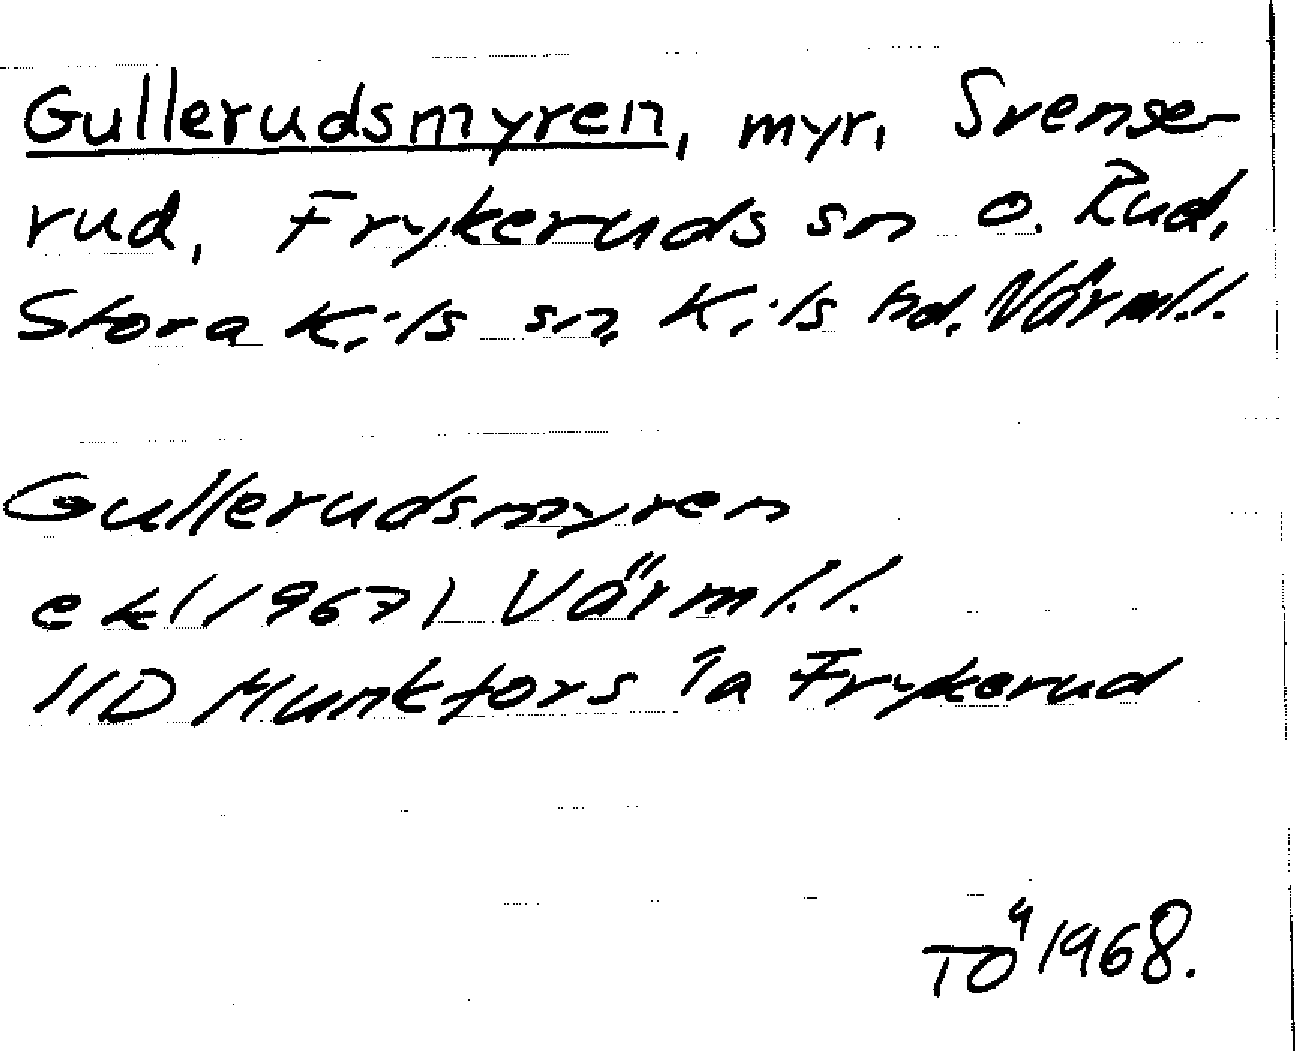 Gullerudsmyren, myr, Svense-
rud, Frykeruds sn o. Rud,
Stora Kils sn, Kils hd. Värml.l.
Gullerudsmyren
ek (1967) Värml.l.
11D Munkfors 1a Frykerud
TÖ 1968.